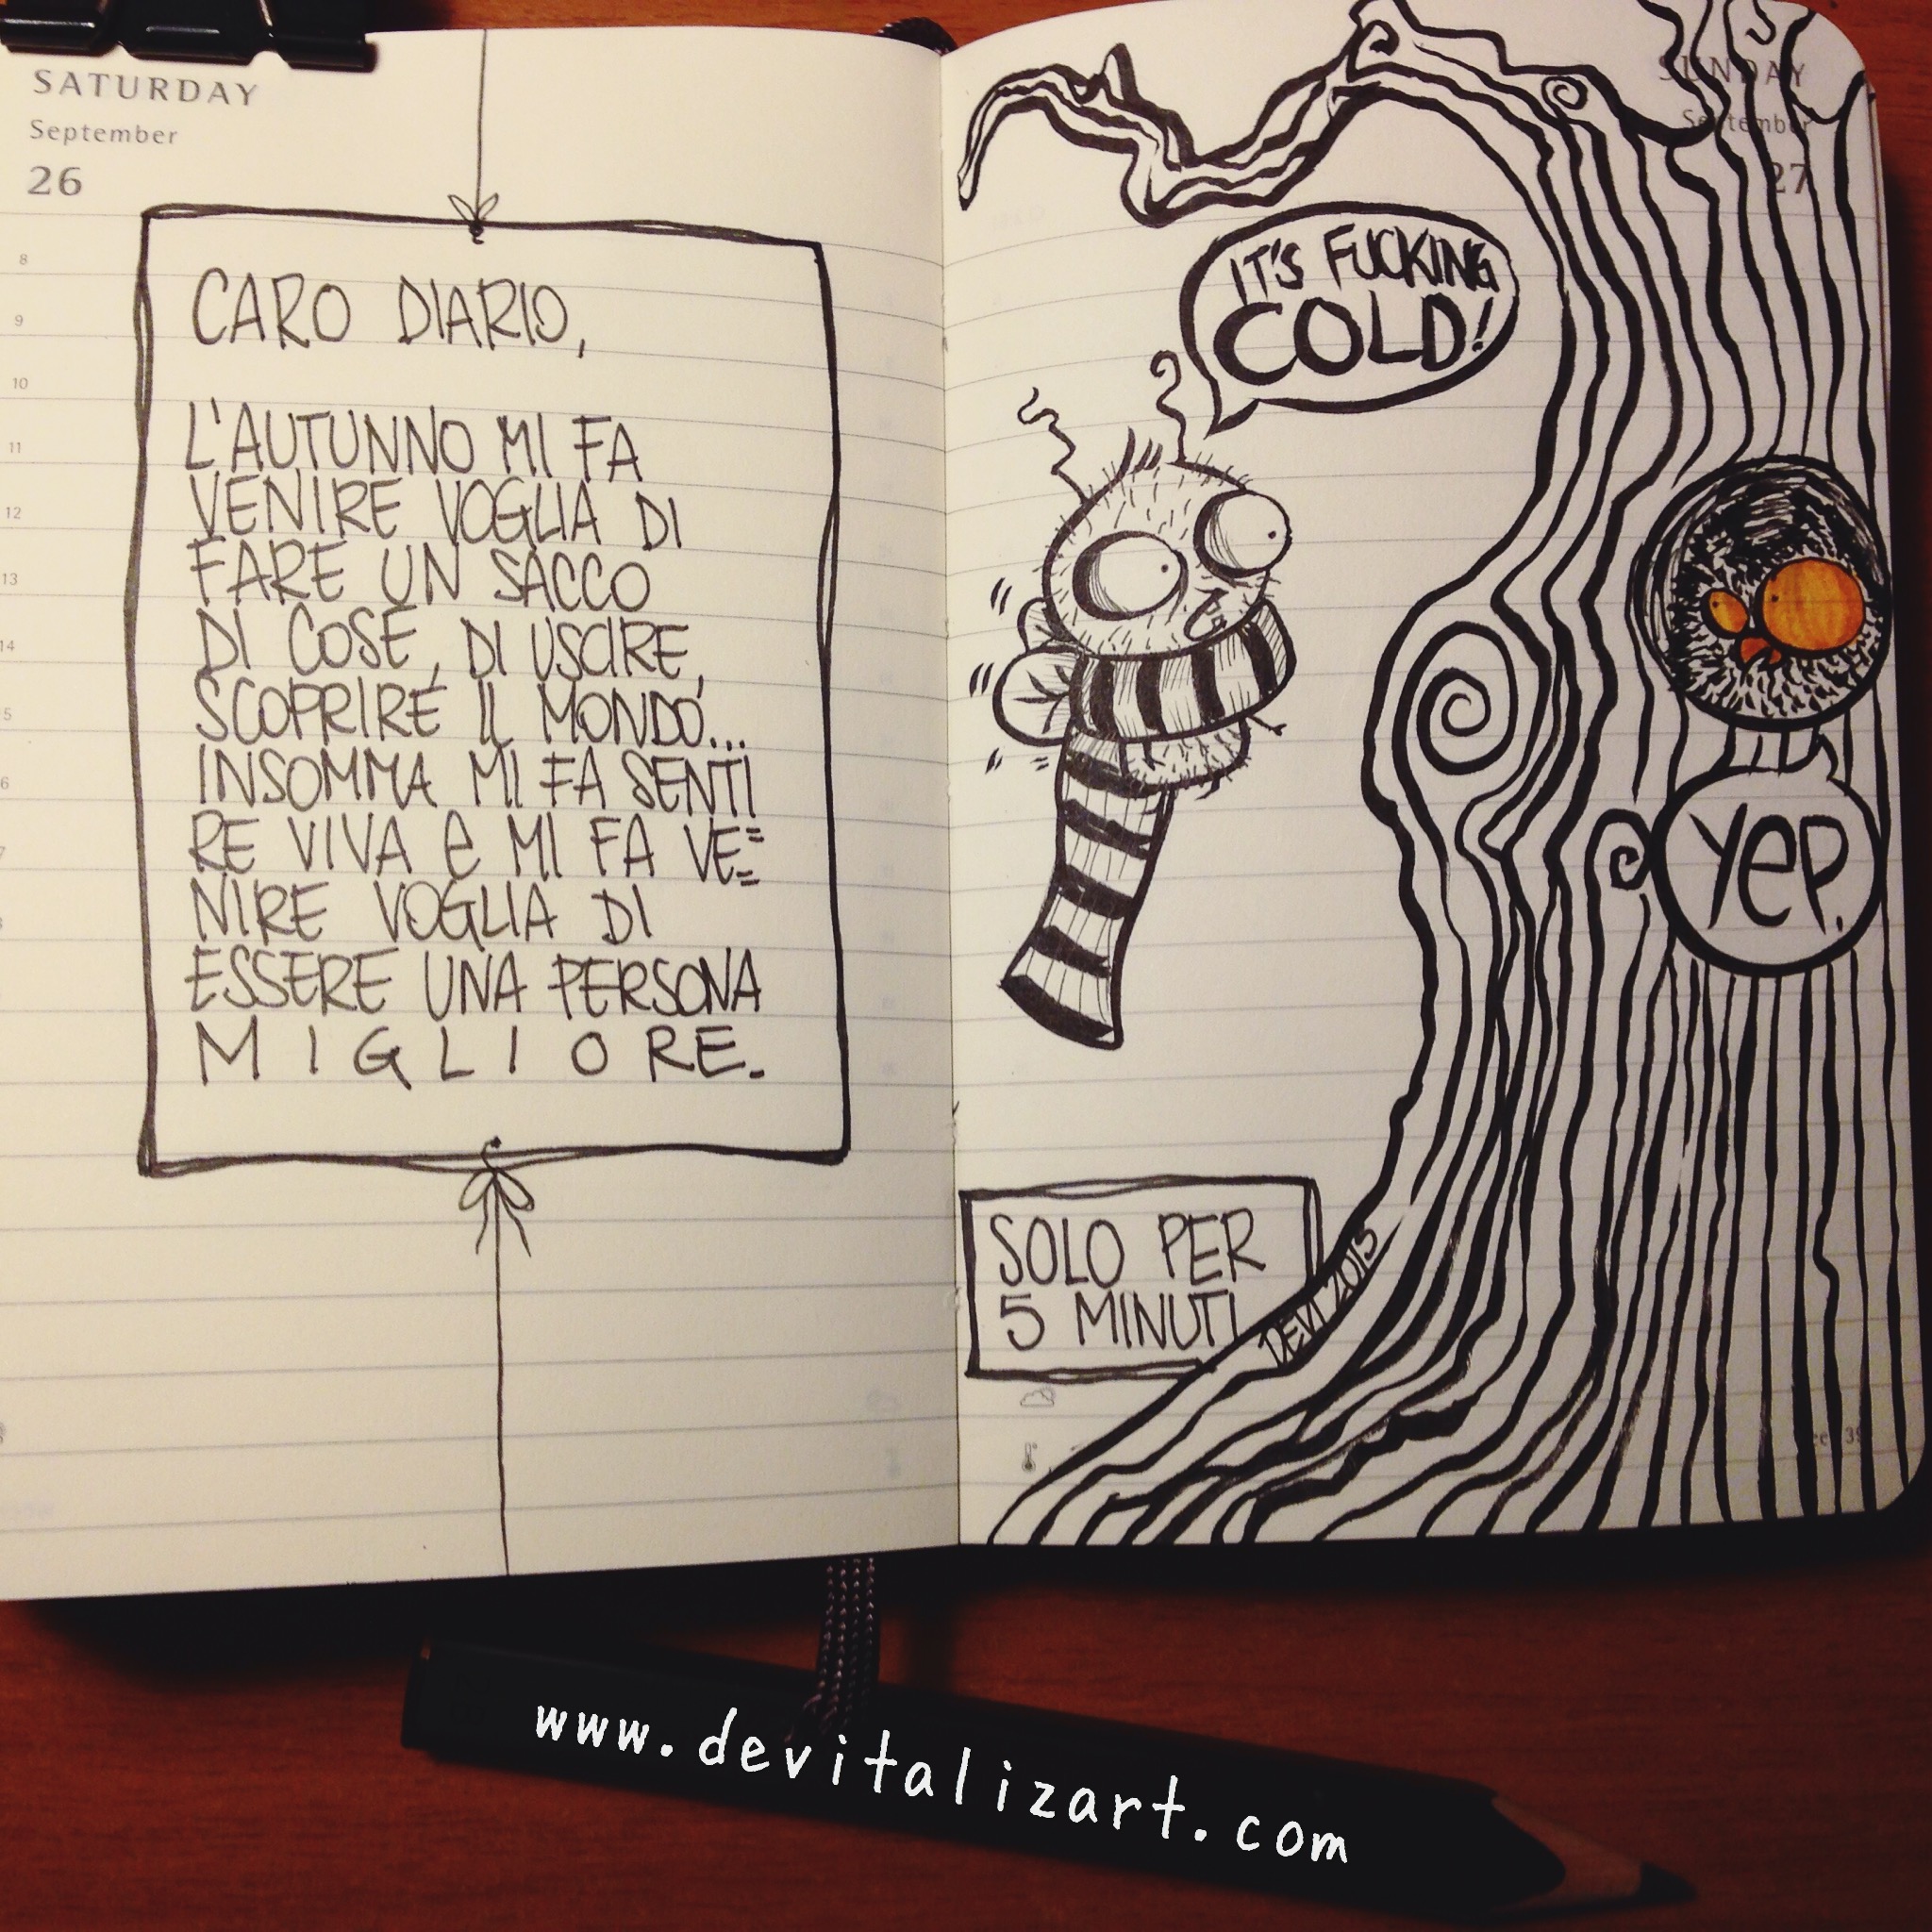 SATURDAY
September
26
8
9
10
11
12
13
14
CARO DIARIO,
L'AUTUNNO MI FA
VENIRE VOGLIA DI
FARE UN SACCO
DI COSE, DI USCIRE,
SCOPRIRE IL MONDO...
INSOMMA MI FA SENTI
RE VIVA e MI FA VE=
NIRE VOGLIA DI
ESSERE UNA PERSONA
MIGLIORE.
SUNDAY
September
27
IT'S FUCKING
COLD!
YeP.
SOLO PER
5 MINUTI
DEVI 2015
www.devitalizart.com